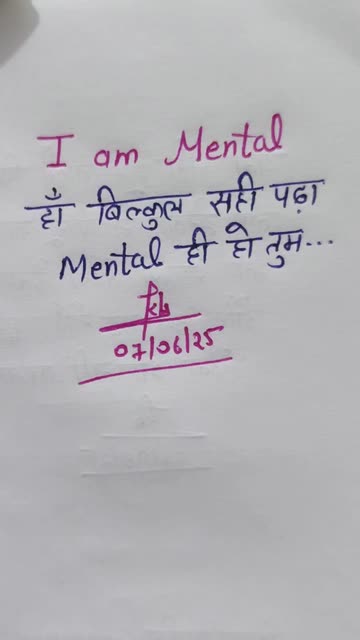 I am Mental
हाँ बिल्कुल सही पढ़ा
Mental ही हो तुम...
07/06/25